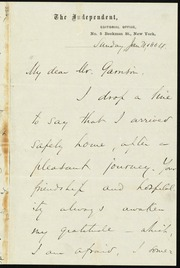 The Independent,
EDITORIAL OFFICE,
No. 5 Beekman St., New York,
Sunday, Jan 31 1864
My dear Mr. Garrison,
I drop a line
to say that I arrived
safely home, after a
pleasant journey. Your
friendship and hospital-
ity always awaken
my gratitude — which,
I am afraid, I some-